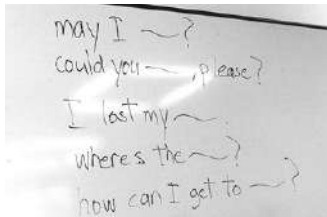 may I ~?
could you ~, please?
I lost my ~.
where's the ~?
how can I get to ~?